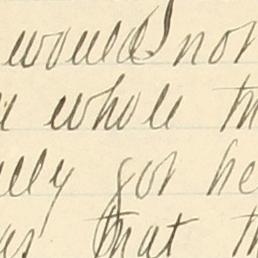 would not
whole th
lly got he
as that th